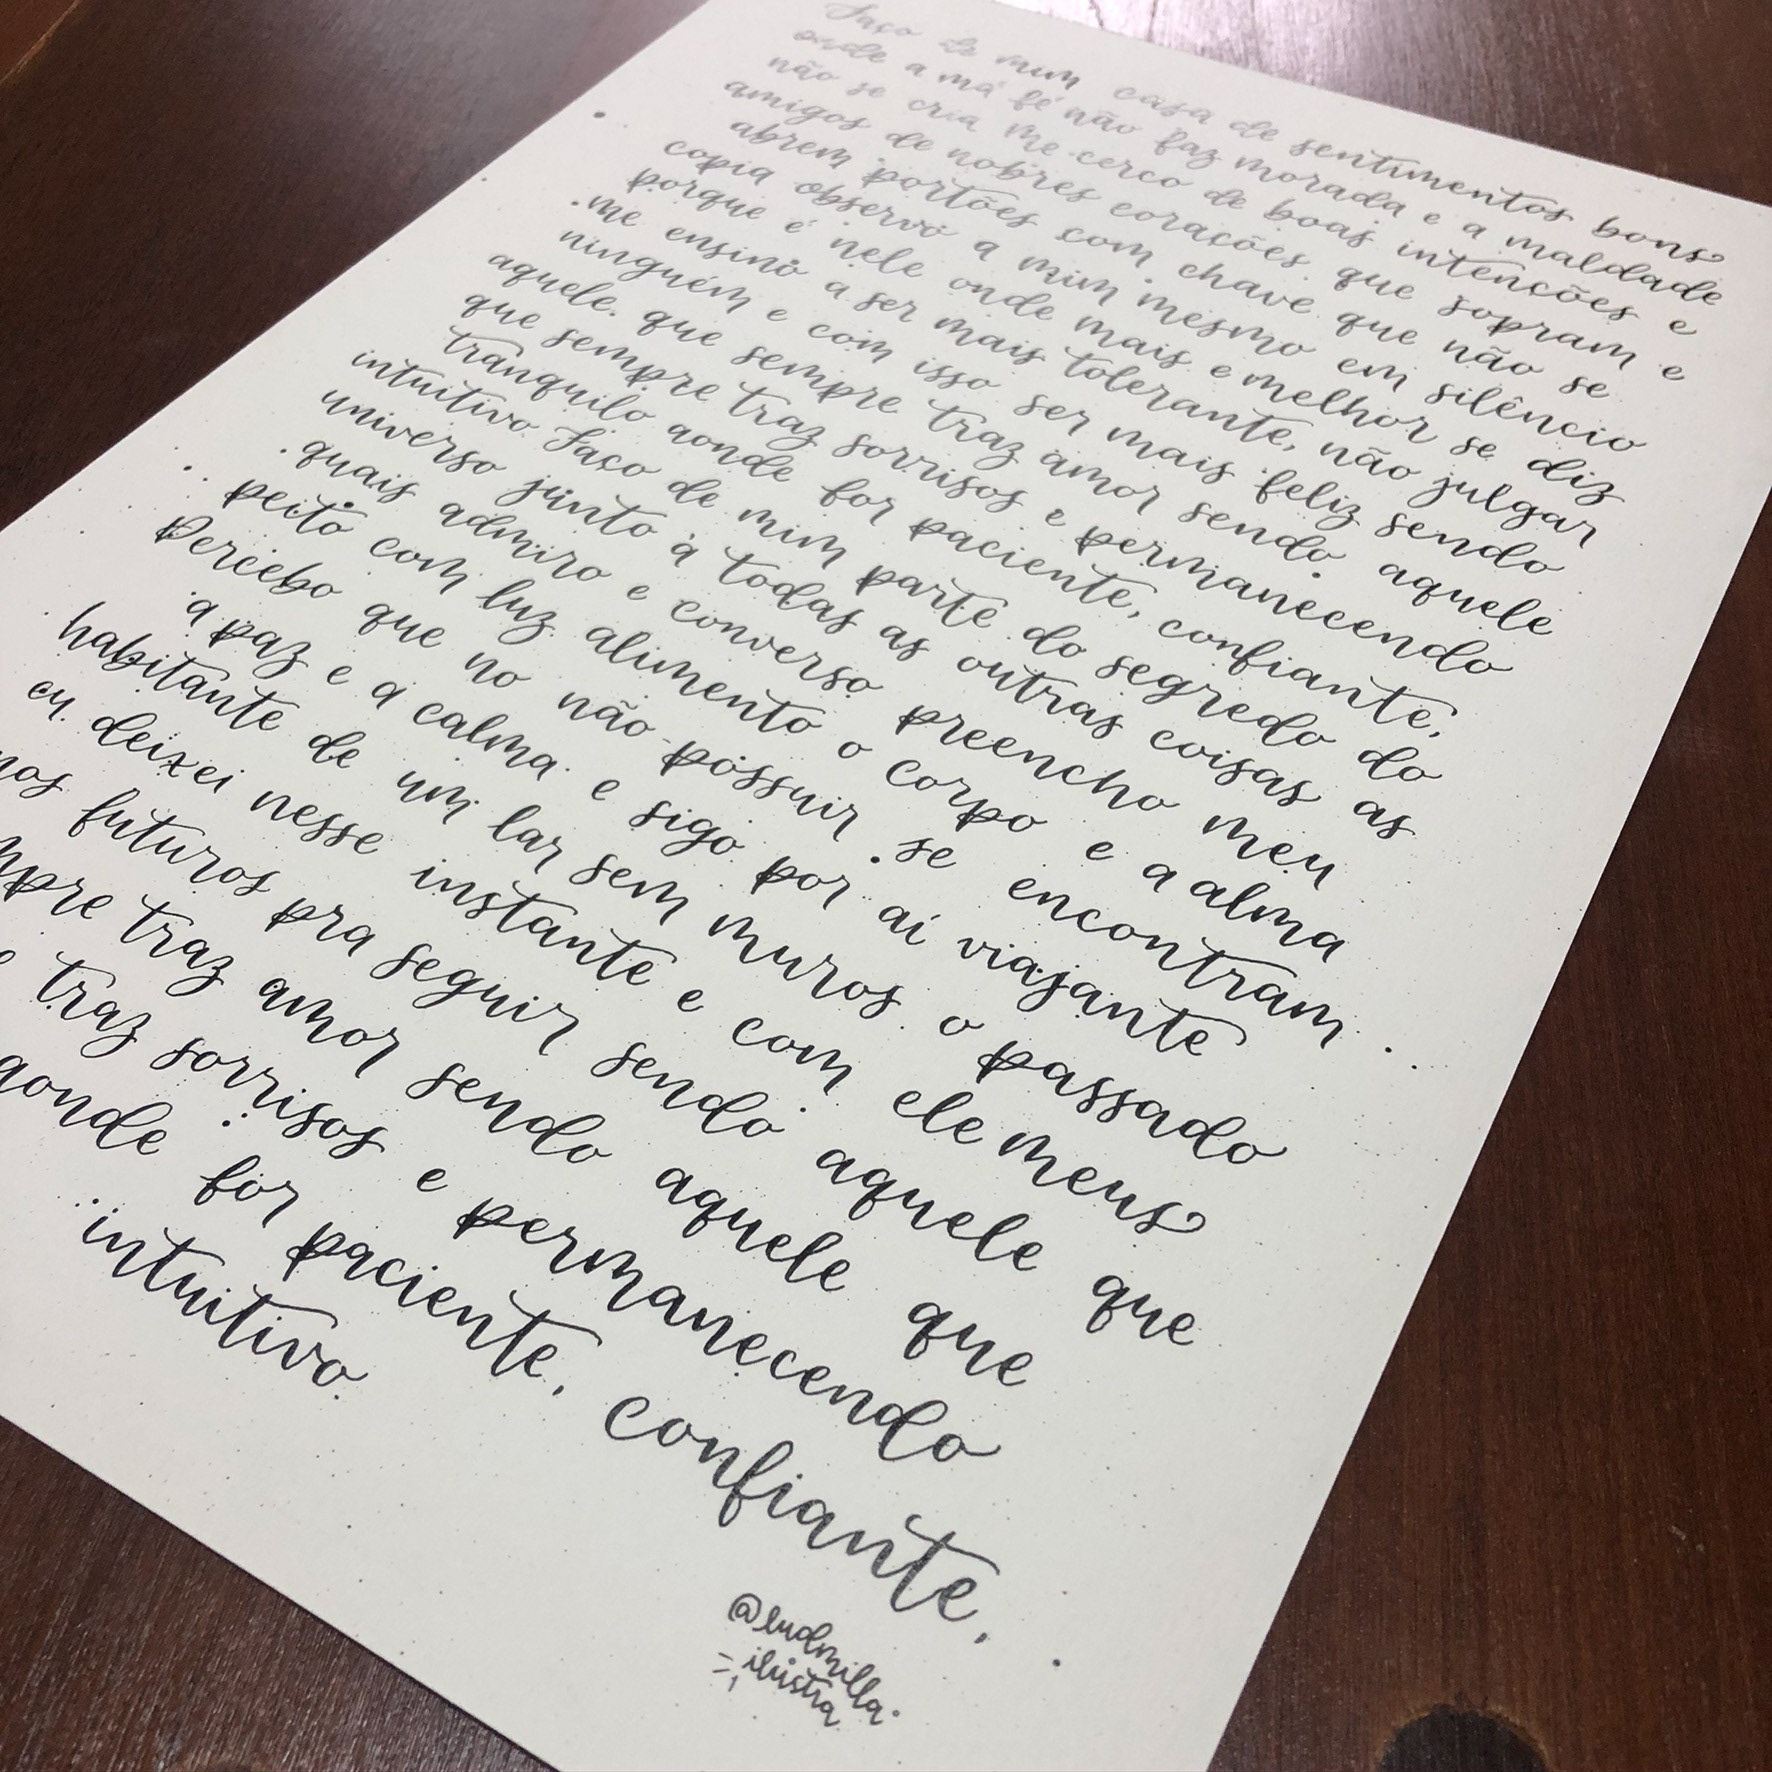 Faço de mim casa de sentimentos bons
onde a má fé não faz morada e a maldade
não se cria me cerco de boas intenções e
amigos de nobres corações que sopram e
abrem portões com chave que não se
copia observo a mim mesmo em silêncio
porque é nele onde mais e melhor se diz
me ensino a ser mais tolerante, não julgar
ninguém e com isso ser mais feliz sendo
aquele que sempre traz amor sendo aquele
que sempre traz sorrisos e permanecendo
tranquilo aonde for paciente, confiante,
intuitivo Faço de mim parte do segredo do
universo junto à todas as outras coisas as
quais admiro e converso preencho meu
peito com luz alimento o corpo e a alma
Percebo que no não possuir se encontram
a paz e a calma e sigo por aí viajante
habitante de um lar sem muros o passado
eu deixei nesse instante e com ele meus
nos futuros pra seguir sendo aquele que
mpre traz amor sendo aquele que
e traz sorrisos e permanecendo
aonde for paciente, confiante,
intuitivo.
@ludmilla.
ilustra